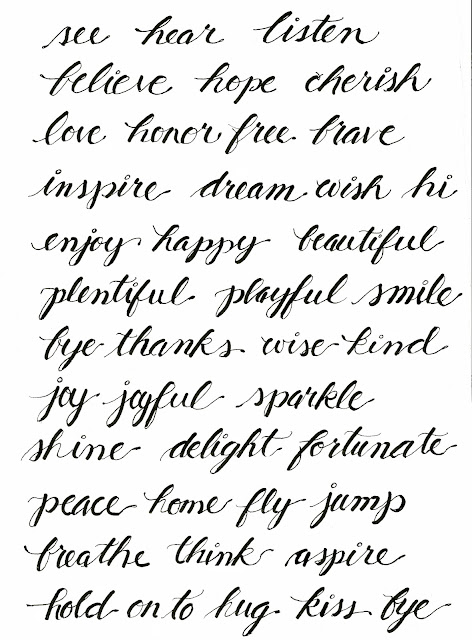 see hear listen
believe hope cherish
love honor free brave
inspire dream wish hi
enjoy happy beautiful
plentiful playful smile
bye thanks wise kind
joy joyful sparkle
shine delight fortunate
peace home fly jump
breathe think aspire
hold on to hug kiss bye